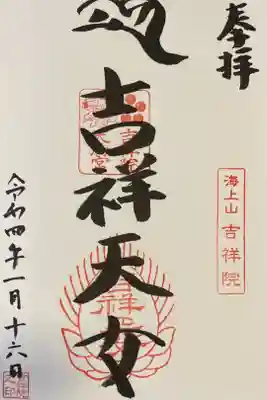 奉拝
海上山 吉祥院
吉祥天女
令和四年一月十六日